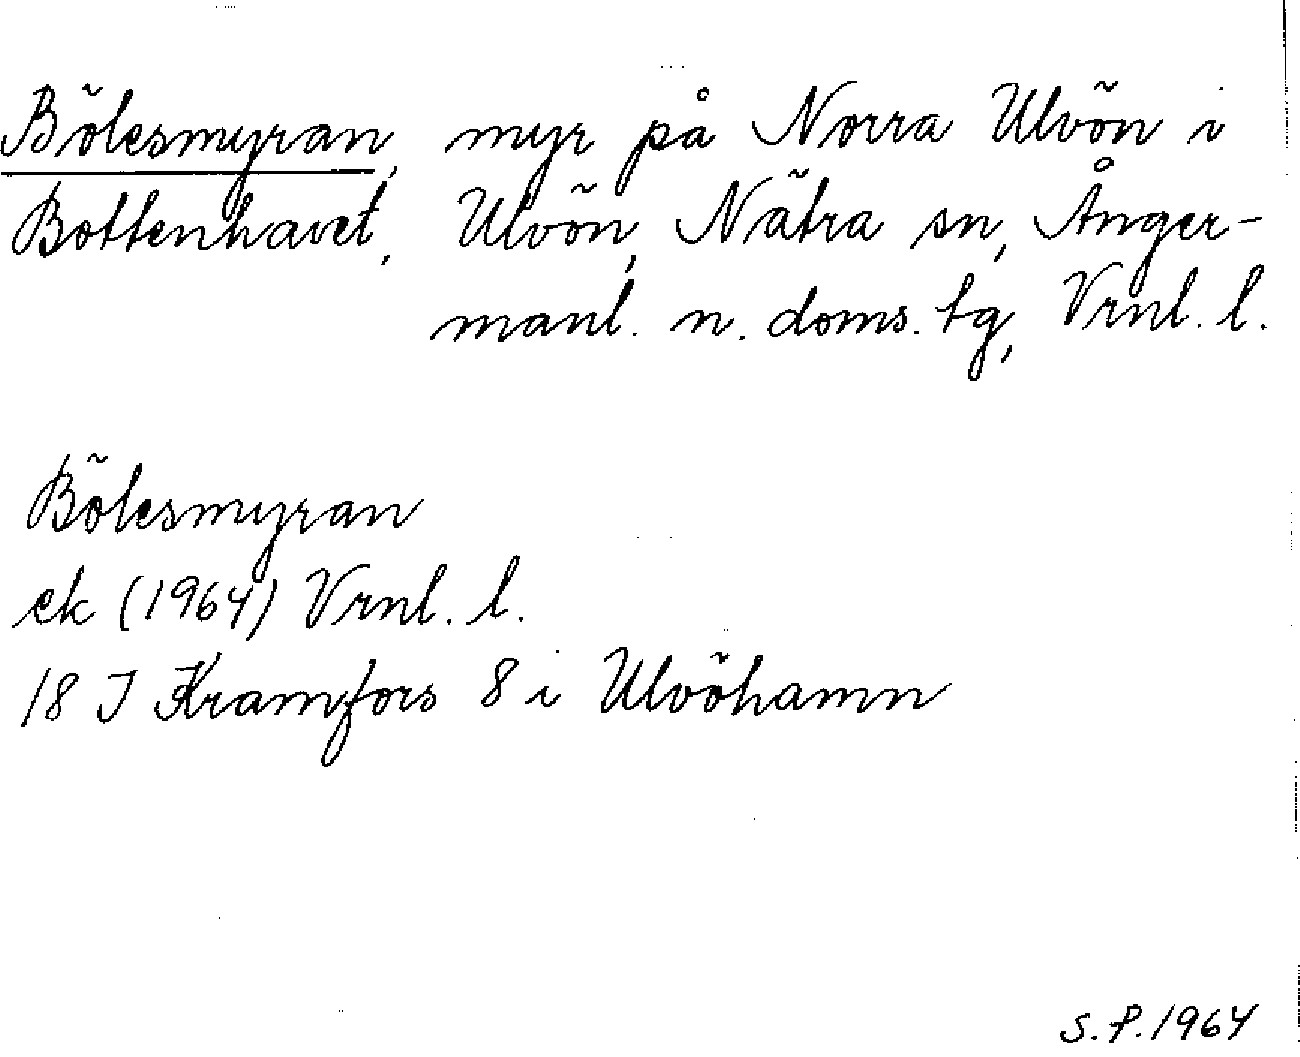 Bölesmyran, myr på Norra Ulvön i
Bottenhavet, Ulvön, Nätra sn, Ånger-
manl. n. doms. tg, Vrnl. l.
Bölesmyran
ek (1964) Vrnl. l.
18 J Kramfors 8 i Ulvöhamn
S.P. 1964